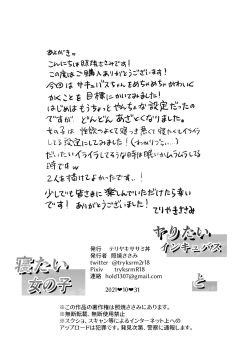 あとがき。
こんにちは照焼ささみです！
この度はご購入ありがとうございます！
今回はサキュバスちゃんをめちゃめちゃかわいく
かくことを目標にかいてみました！
はじめはもうちょっとやんちゃな設定だったの
ですがどんどんあざとくなりました。
女の子は性欲つよくて寝つき悪くて寝たくてイライラ
してる設定にしてみました！
だいたいイライラしてるような時は眠いかムラムラしてる
時ですｗ
2人を描けてよかったです…！
少しでも皆さまに楽しんでいただけたら幸い
です！ありがとうございました！
てりやきささみ
ヤりたい
インキュバス
と
寝たい
女の子
発行 テリヤキササミ丼
発行者 照焼ささみ
twitter @tryksrm2r18
Pixiv tryksrmR18
連絡 hold1307@gmail.com
2021❤10❤31
※この作品の著作権は照焼ささみにあります。
※無断転載、無断使用禁止
※スクショ、スキャン等によるインターネット上への
アップロードは犯罪です。発見次第、警察に通報します。